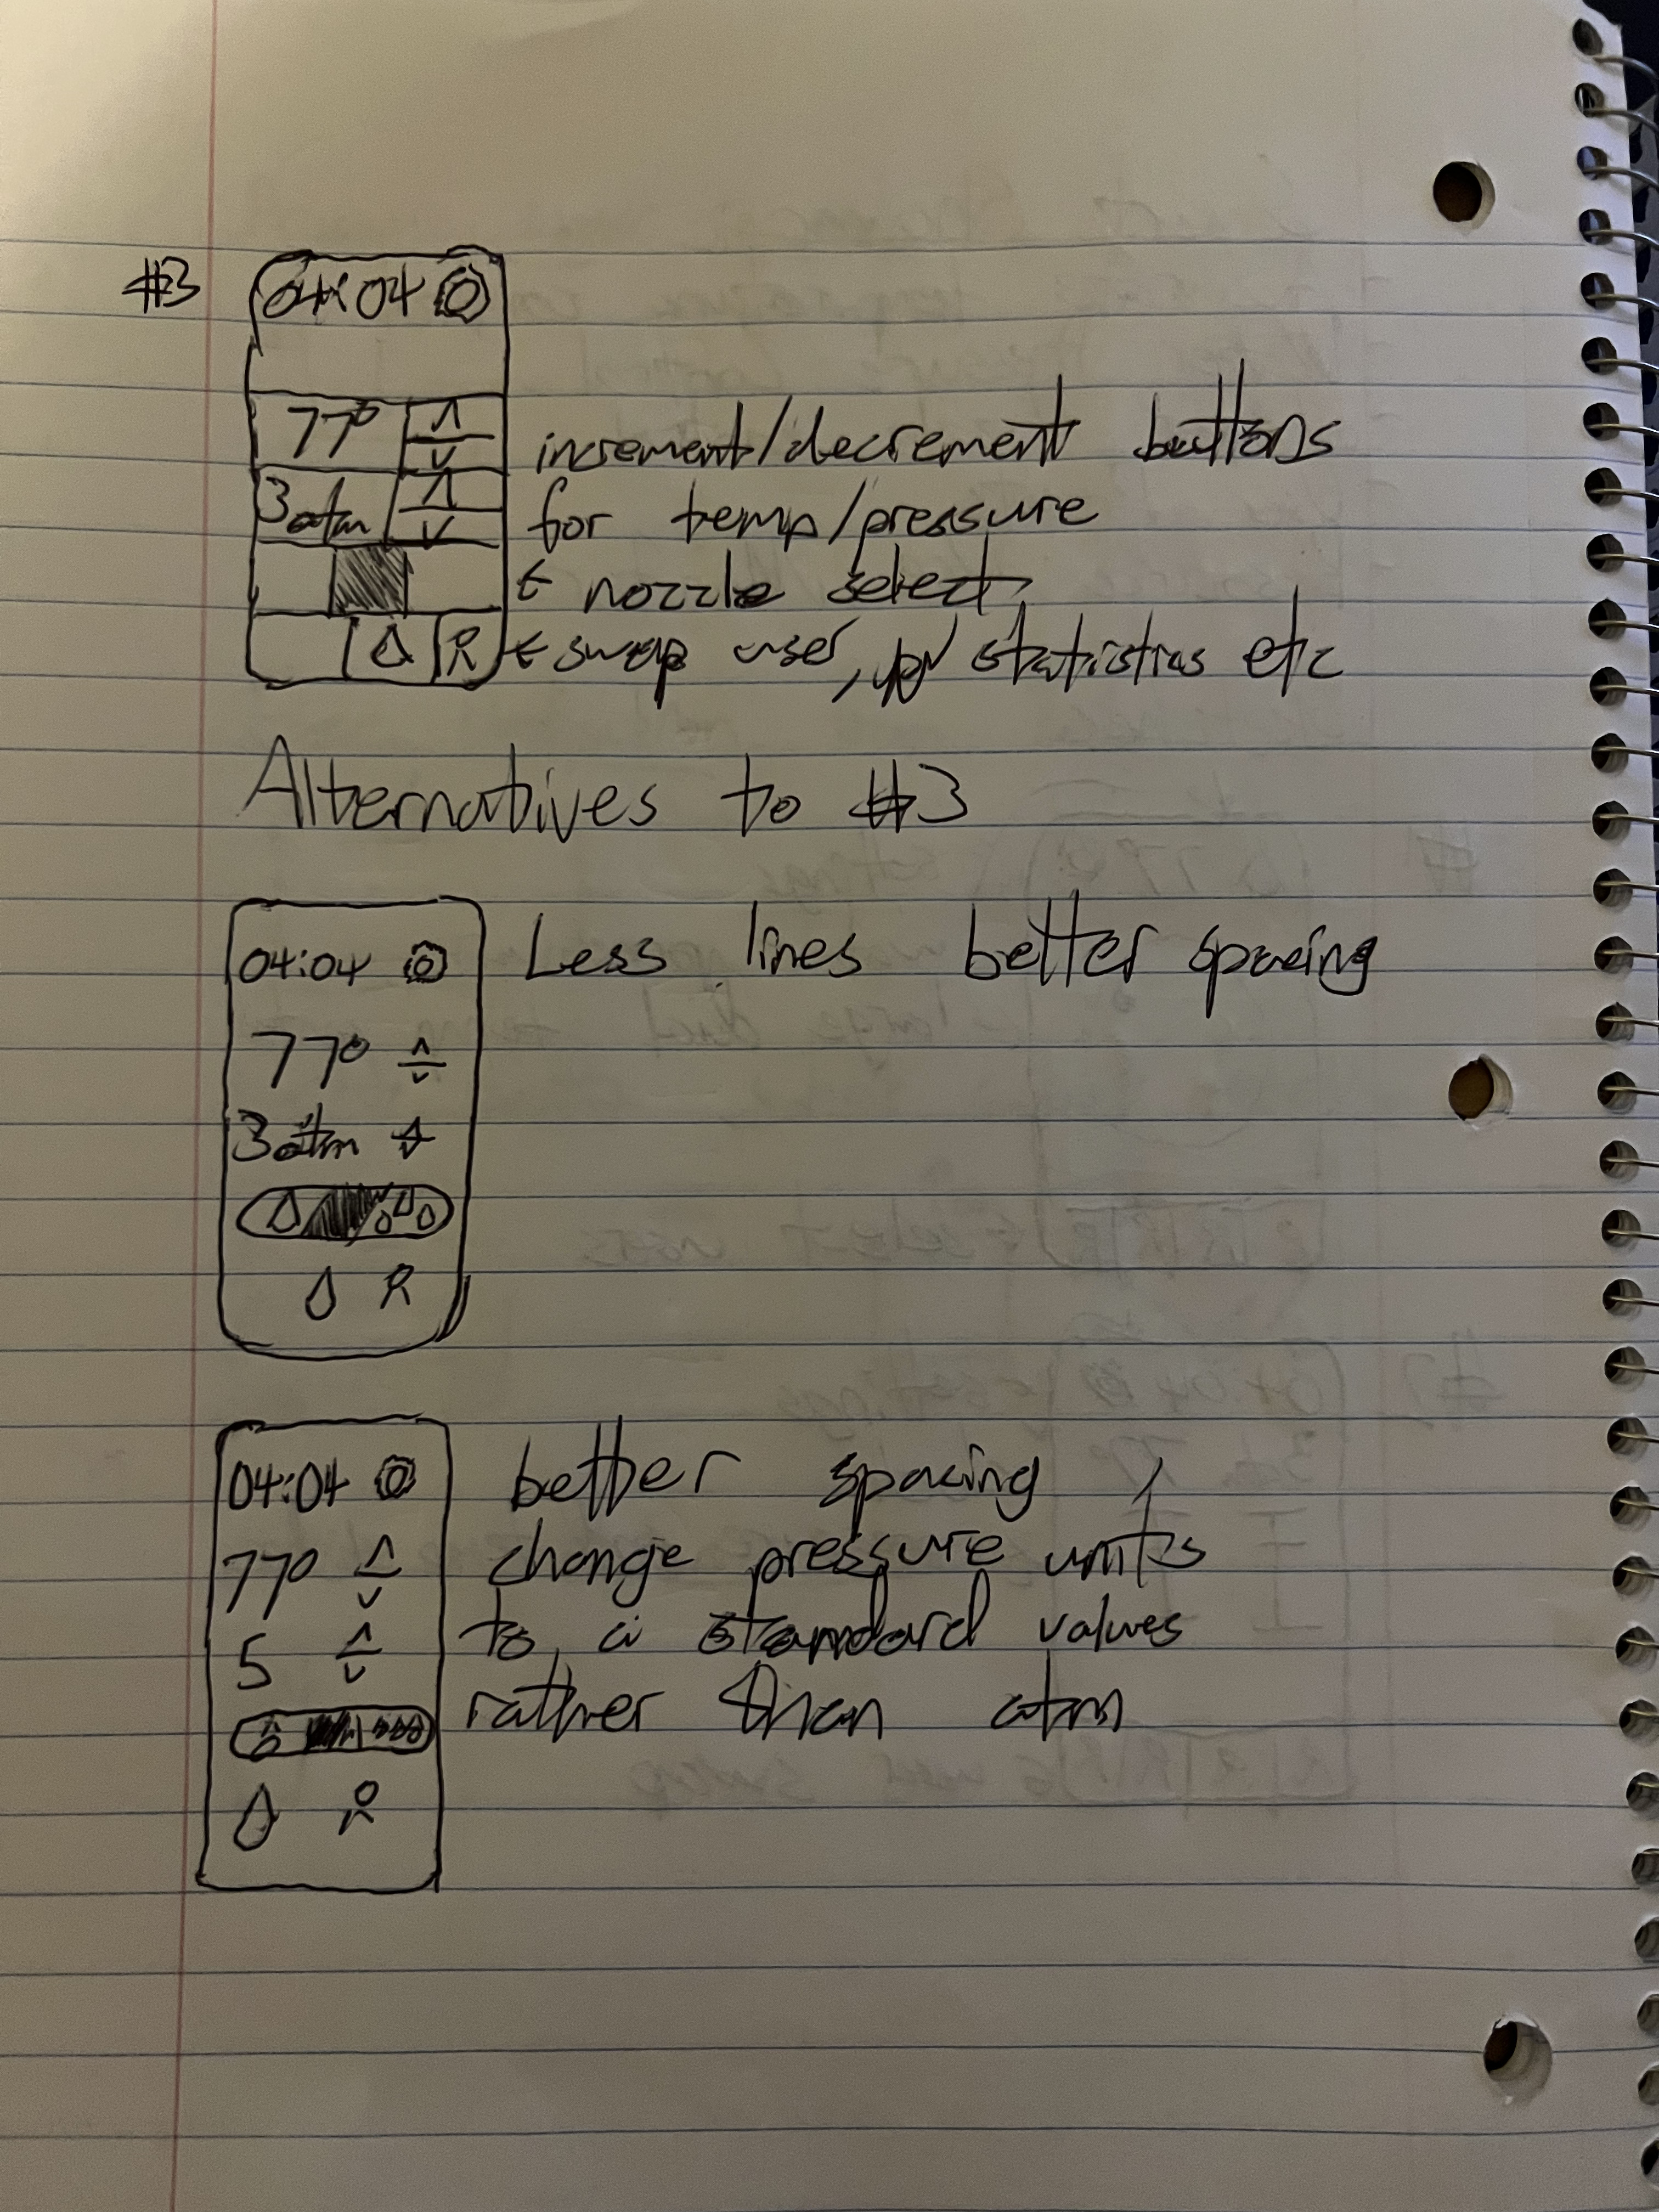 #3
04:04
77°
increment/decrement buttons
3atm
for temp/pressure
← nozzle select
← swap user, statistics etc
Alternatives to #3
04:04
Less lines better spacing
77°
3atm
04:04
better spacing,
77°
change pressure units
5
to a standard values
rather than atm